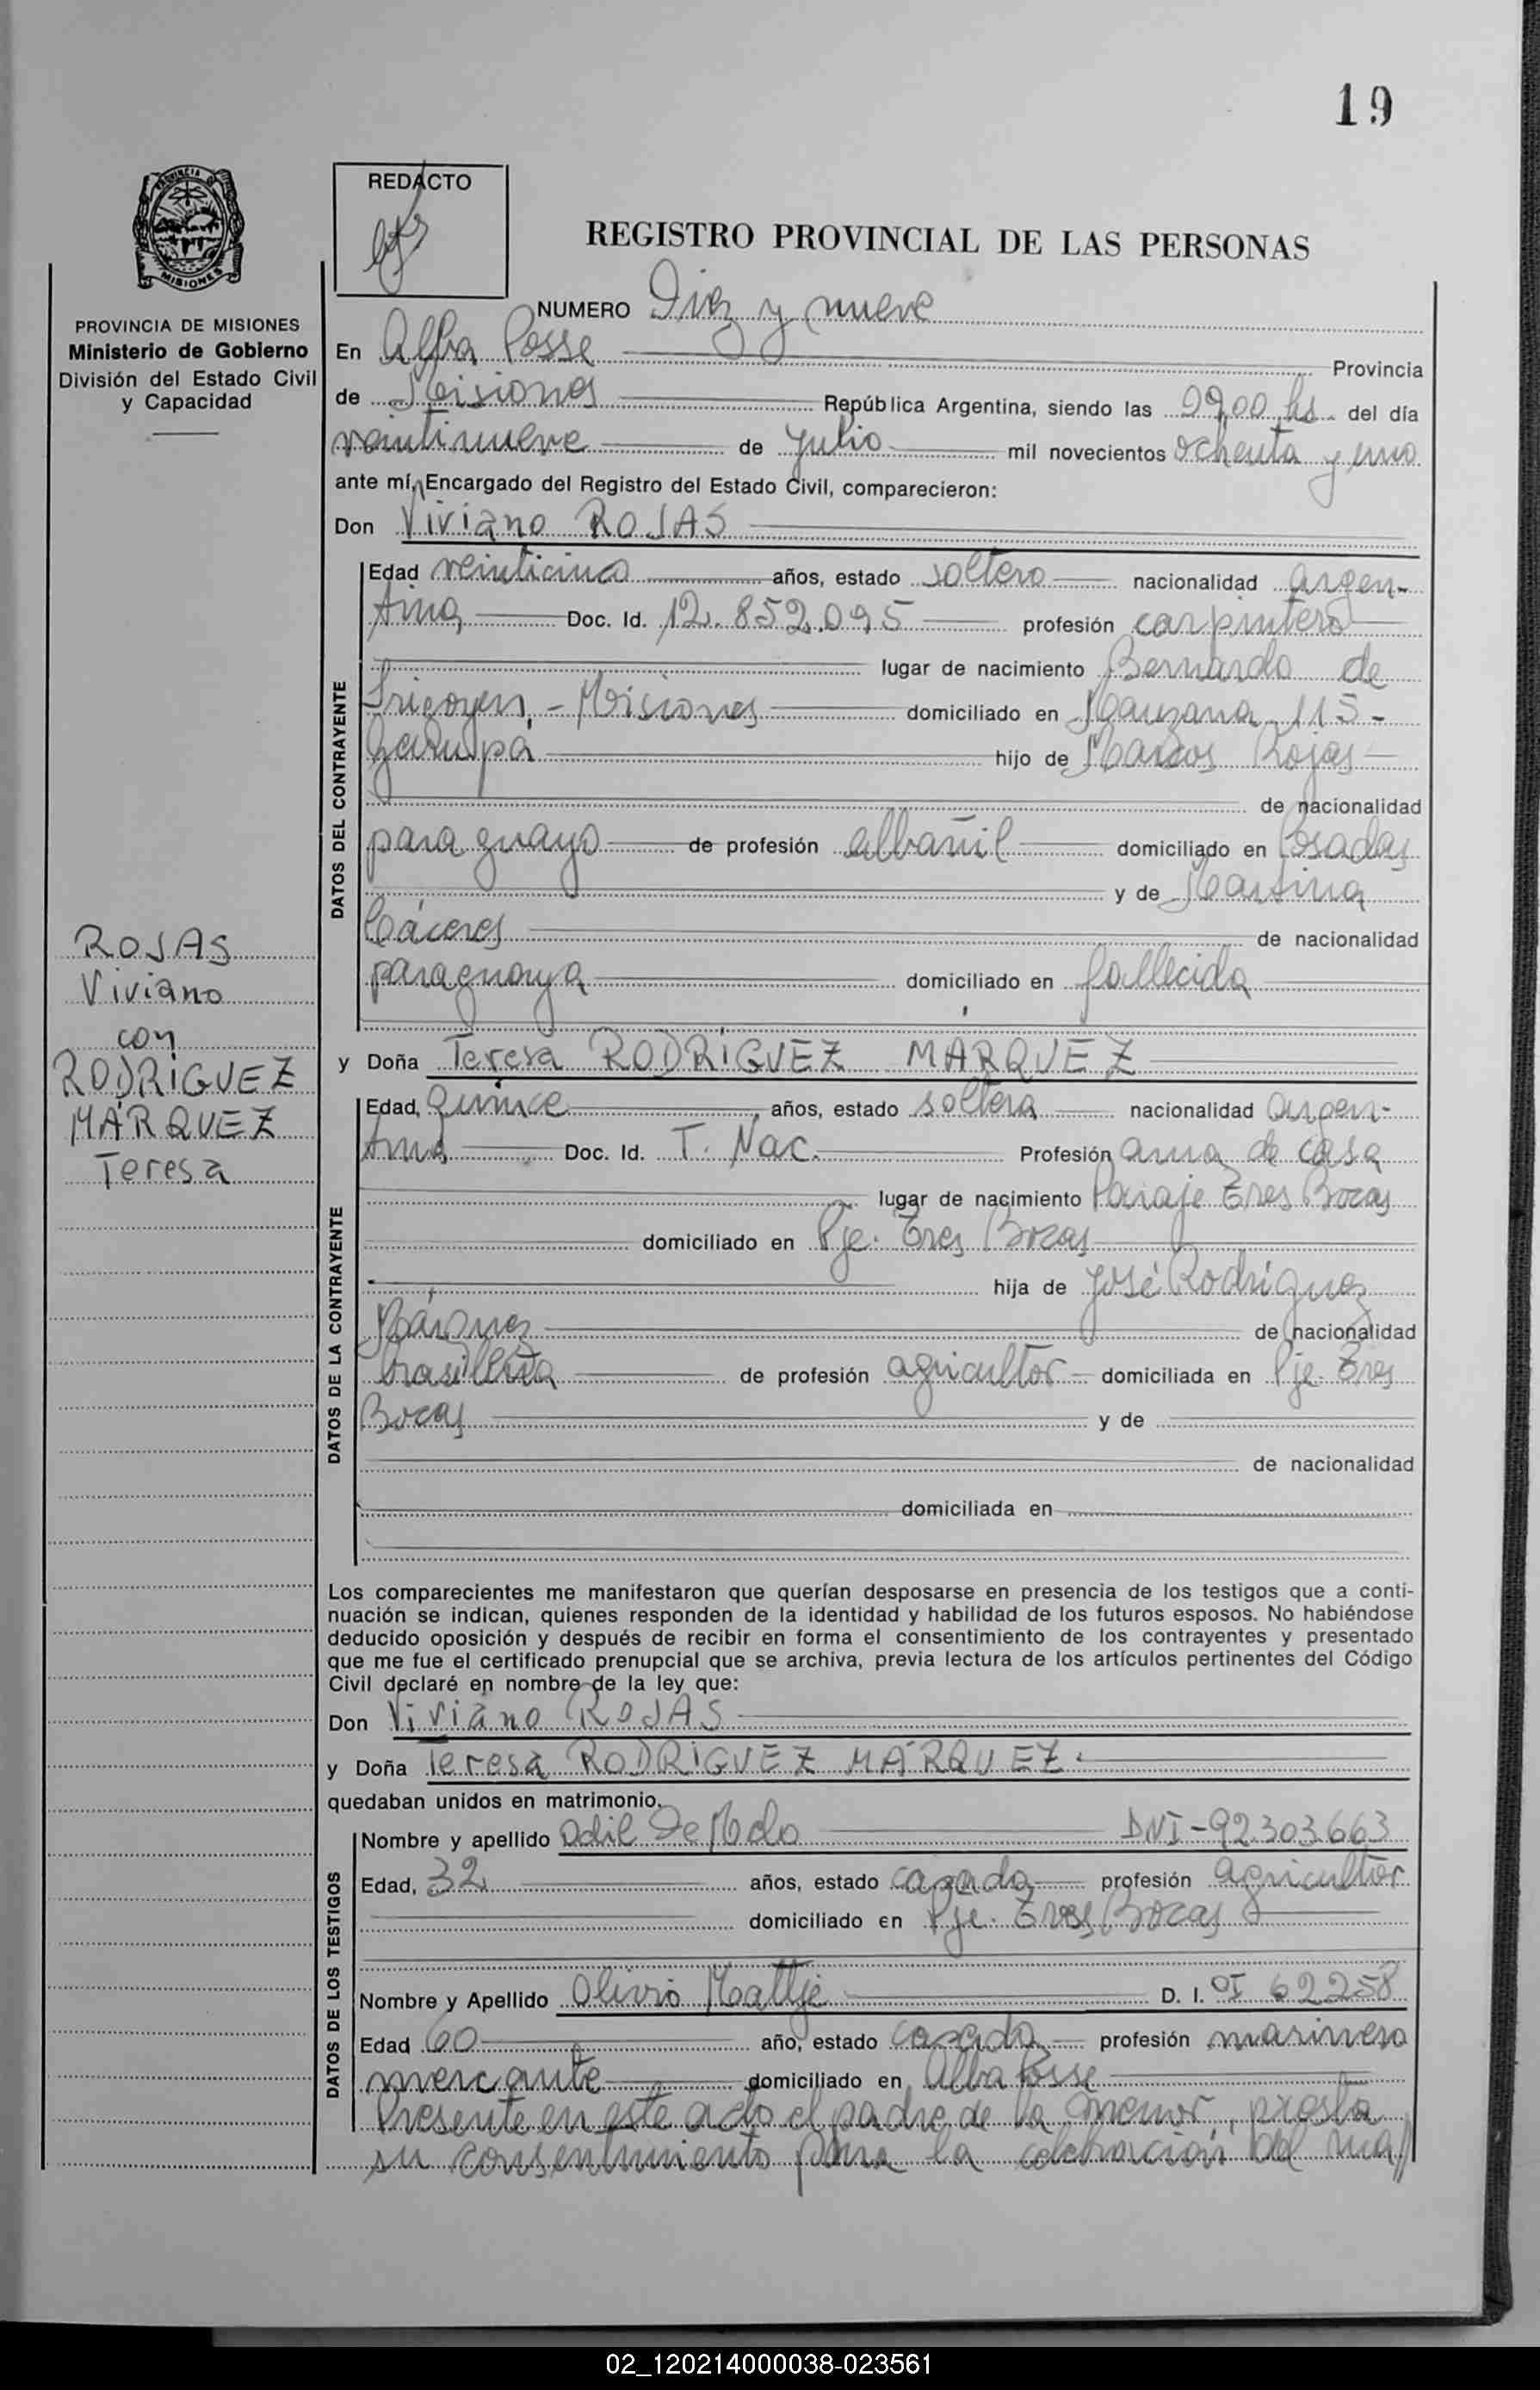 19
PROVINCIA DE
MISIONES
REDACTO
REGISTRO PROVINCIAL DE LAS PERSONAS
PROVINCIA DE MISIONES
Ministerio de Gobierno
División del Estado Civil
y Capacidad
NUMERO Diez y nueve
En Alba Posse Provincia
de Misiones República Argentina, siendo las 09,00 hs. del día
veintinueve de julio mil novecientos ochenta y uno
ante mí, Encargado del Registro del Estado Civil, comparecieron:
Don Viviano ROJAS
DATOS DEL CONTRAYENTE
Edad veinticinco años, estado soltero nacionalidad argen-
tina Doc. Id. 12.852.095 profesión carpintero
lugar de nacimiento Bernardo de
Irigoyen, - Misiones domiciliado en Manzana 115 -
Garupá hijo de Marcos Rojas
de nacionalidad
paraguayo de profesión albañil domiciliado en Posadas
y de Martina
Cáceres de nacionalidad
paraguaya domiciliado en fallecida
ROJAS
Viviano
con
RODRÍGUEZ
MÁRQUEZ
Teresa
y Doña Teresa RODRÍGUEZ MÁRQUEZ
DATOS DE LA CONTRAYENTE
Edad, quince años, estado soltera nacionalidad argen-
tina Doc. Id. T. Nac. Profesión ama de casa
lugar de nacimiento Paraje Tres Bocas
domiciliado en Pje. Tres Bocas
hija de José Rodríguez
Márquez de nacionalidad
brasileña de profesión agricultor domiciliada en Pje. Tres
Bocas y de
de nacionalidad
domiciliada en
Los comparecientes me manifestaron que querían desposarse en presencia de los testigos que a conti-
nuación se indican, quienes responden de la identidad y habilidad de los futuros esposos. No habiéndose
deducido oposición y después de recibir en forma el consentimiento de los contrayentes y presentado
que me fue el certificado prenupcial que se archiva, previa lectura de los artículos pertinentes del Código
Civil declaré en nombre de la ley que:
Don Viviano ROJAS
y Doña Teresa RODRÍGUEZ MÁRQUEZ.
quedaban unidos en matrimonio.
DATOS DE LOS TESTIGOS
Nombre y apellido Odil De Melo DNI-92.303.663
Edad, 32 años, estado casado profesión agricultor
domiciliado en Pje. Tres Bocas
Nombre y Apellido Olivio Mattje D. I. OI 62258
Edad 60 año, estado casado profesión marinero
mercante domiciliado en Alba Posse
Presente en este acto el padre de la menor, presta
su consentimiento para la celebración del ma//
02_120214000038-023561